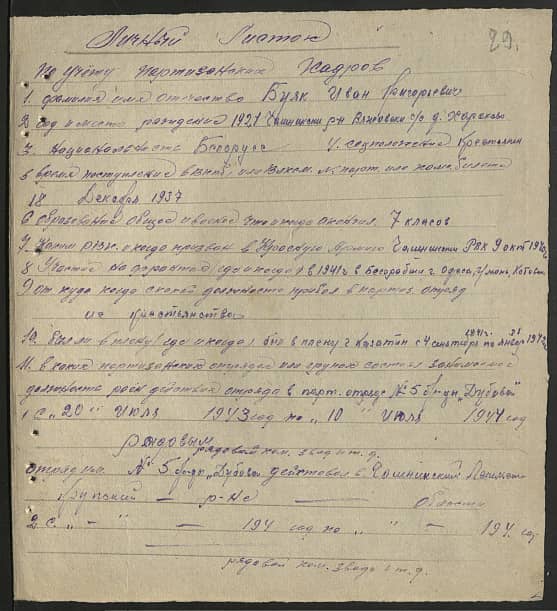 Личный Листок
29.
По учёту партизанских Кадров
1. фамилия имя отчество Буяк Иван Григорьевич
2 год и место рождения 1921 Чашникски р-н с/с д.
3. национальность Белорус 4. соцположение Крестьянин
5 время поступления в или парт. или комс. билета
18 Декабря 1937
6 Образование общее и военое что и когда окончил. 7 класов
7. Каким РВК. и когда призван в Красную Армию Чашникским РВК 9 окт 1940 г.
8 Участие на фронтах (где и когда) в 1941 г в Бесарабии г. Одеса, Умань,
9 от куда когда с какой должности прибыл в партиз. отряд
из крестьянства
10. Были в плену (где и когда) был в плену г Казатин с 4 сентября 1941 г. по январь 1942 г.
11. в каких партизанских отрядах или групах состоял занимаемая
должность район действия отряда в парт. отряде № 5 бр-ды „Дубова"
1 с „20" Июля 1943 год по „10" Июля 1944 год
рядовым
рядовой ком. звода и т. д.
отряд им. № 5 бр-ды „Дубова" действовал в Чашникский Лепельск
р-не области
2 с „ – " – 194 год по „ " – 194 год
рядовой ком. звода и т. д.